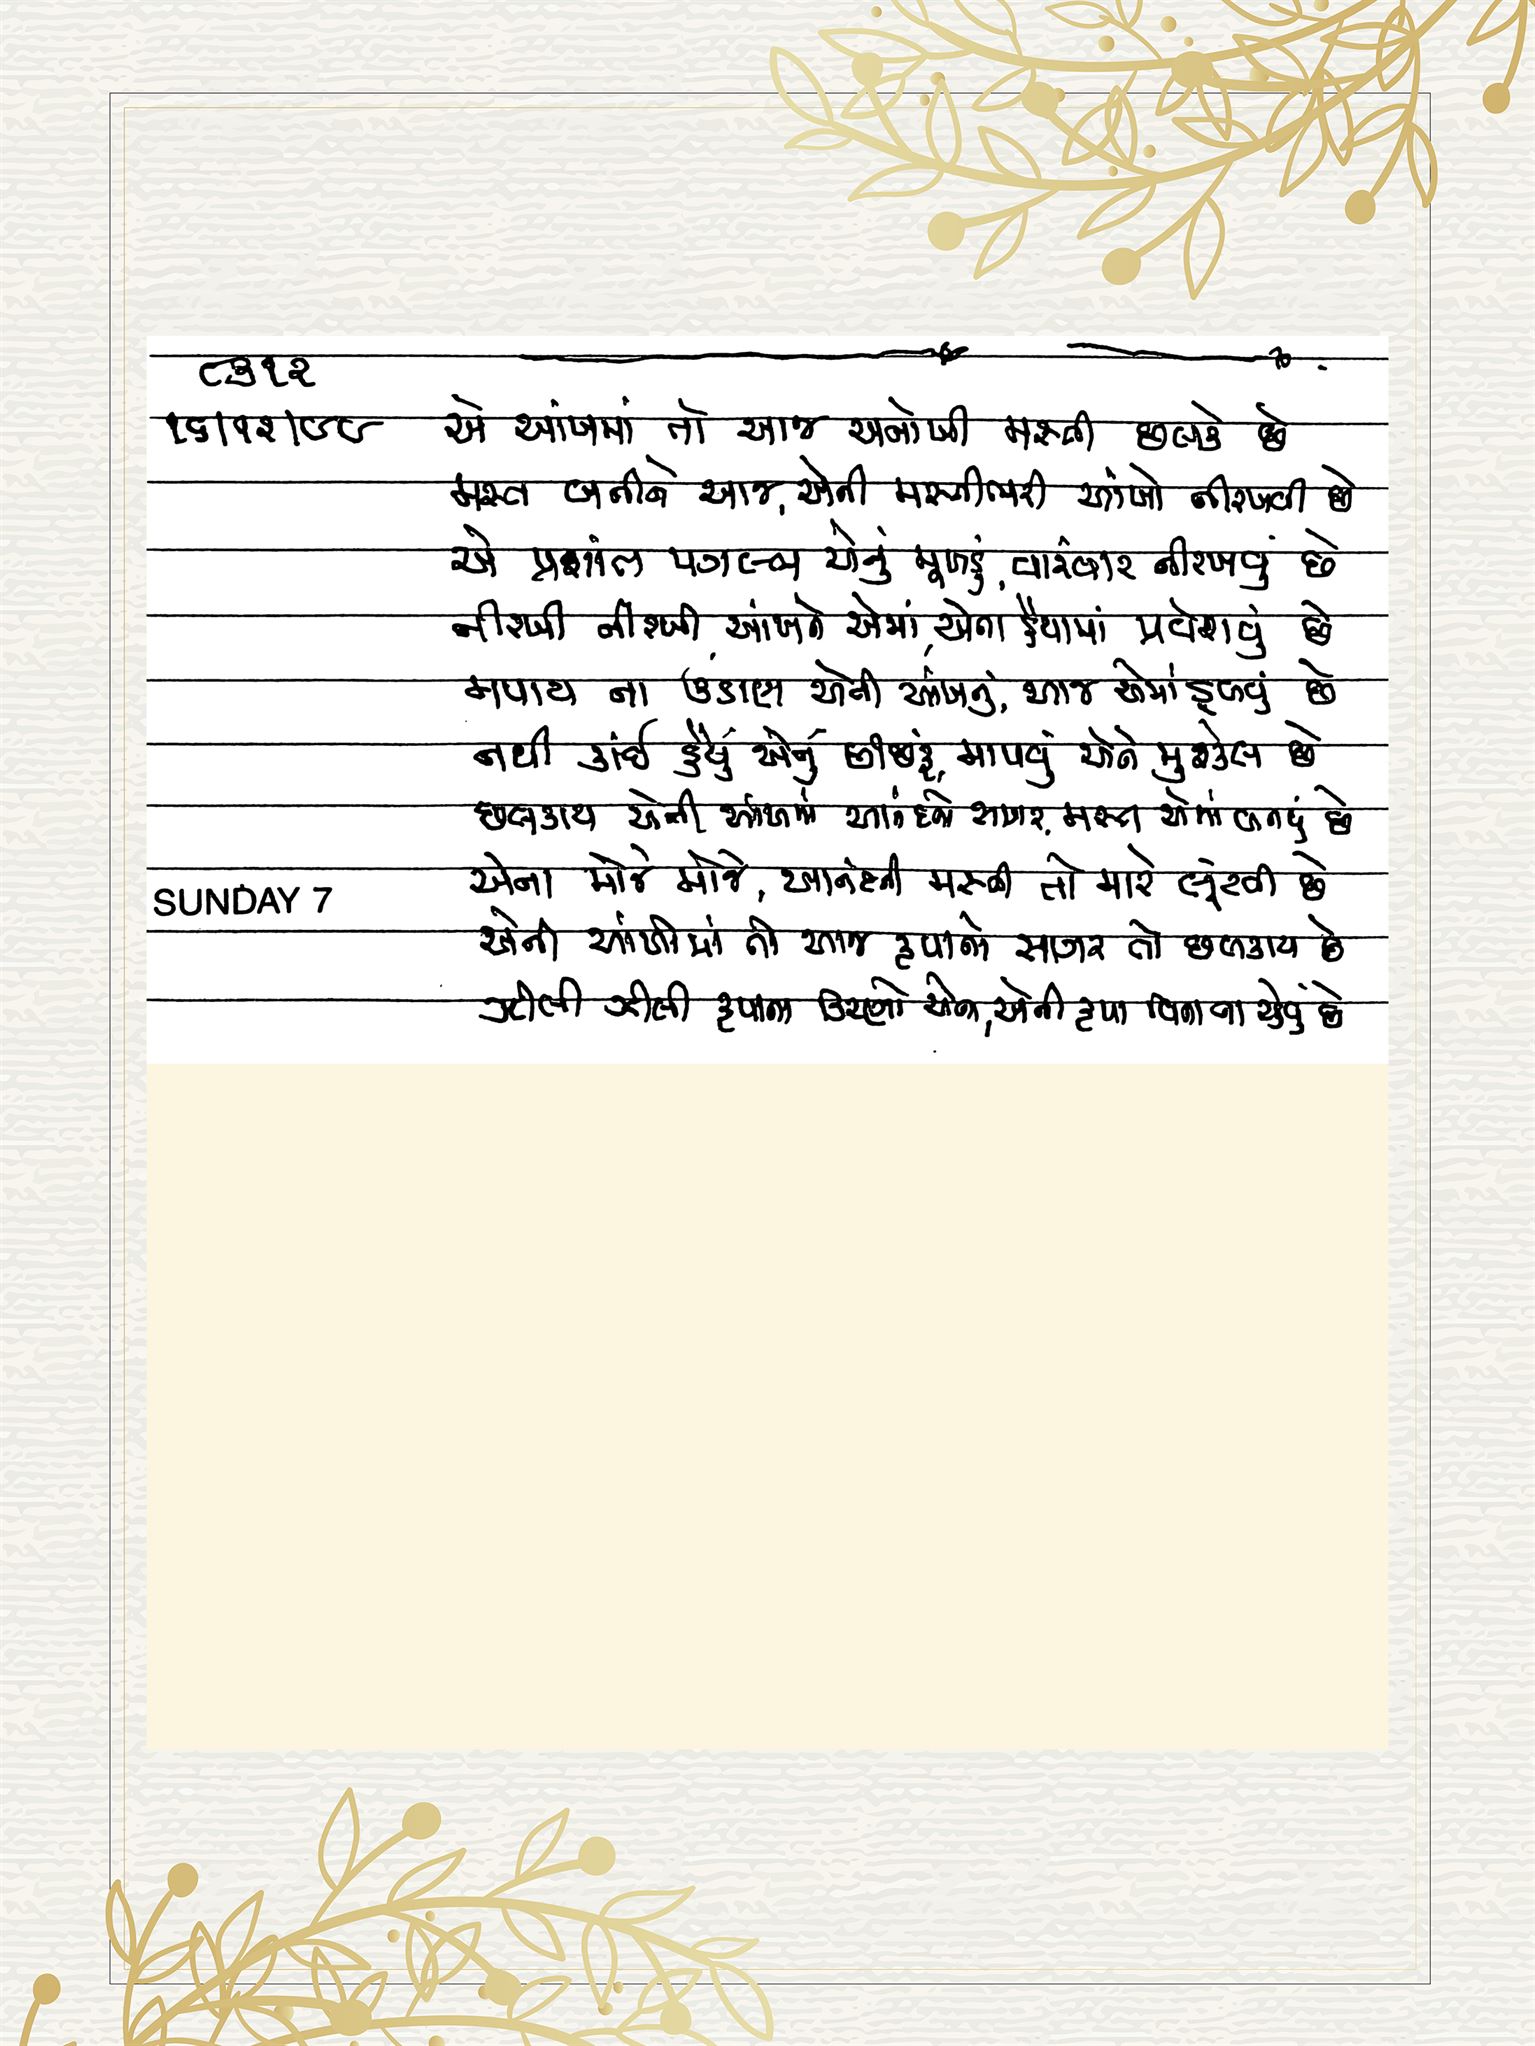 ૮૩૧૨
૧૬/૧૨/૯૯ એ આંખમાં તો આજ અનોખી મસ્તી છલકે છે
મસ્ત બનીને આજ, એની મસ્તીભરી આંખો નીરખવી છે
એ પ્રશાંત એનું મૂખડું, વારંવાર નીરખવું છે
નીરખી નીરખી આંખને એમાં, એના હૈયામાં પ્રવેશવું છે
મપાય ના ઉંડાણ એની આંખનું, આજ એમાં ડૂબવું છે
નથી કાંઈ હૈયું એનું છીછરૂં, માપવું એને મુશ્કેલ છે
છલકાય એની આંખમાં આનંદનો સાગર, મસ્ત એમાં બનવું છે
SUNDAY 7 એના મોજે મોજે, આનંદની મસ્તી તો મારે લૂંટવી છે
એની આંખોમાં તો આજ કૃપાનો સાગર તો છલકાય છે
ઝીલી ઝીલી કૃપાના કિરણો એના, એની કૃપા વિના ના રહેવું છે